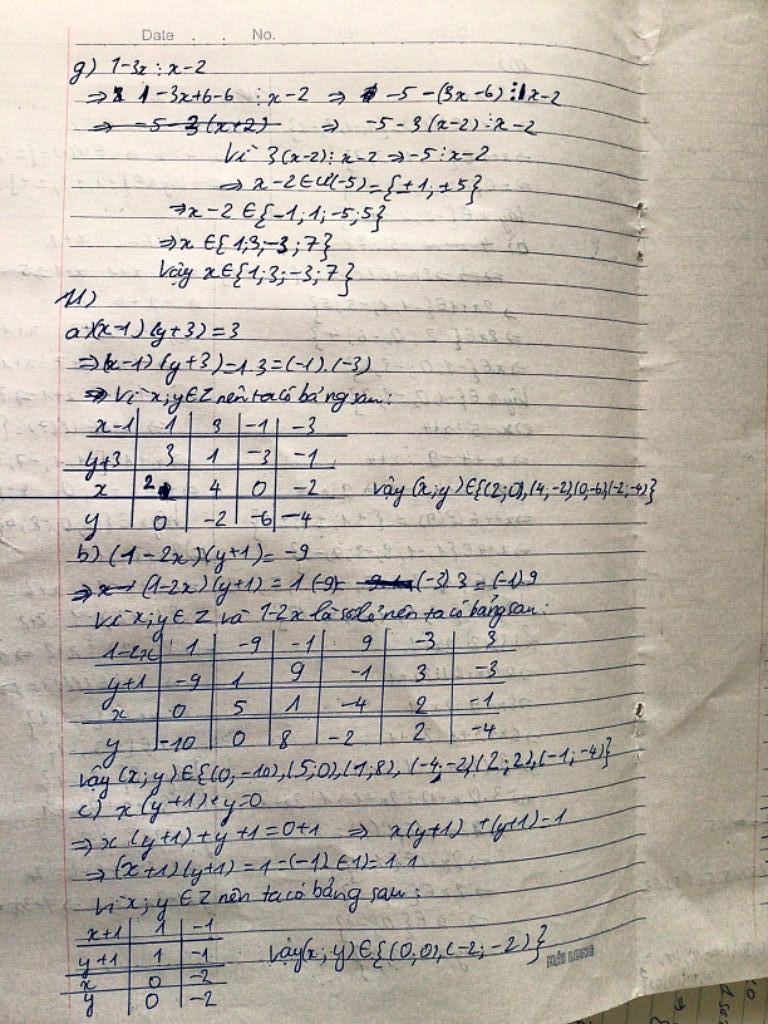 Date . . No.
g) 1-3x ⋮ x-2
⇒ 1-3x+6-6 ⋮ x-2 ⇒ -5-(3x-6) ⋮ x-2
⇒ -5-3(x+2) ⇒ -5-3(x-2) ⋮ x-2
Vì 3(x-2) ⋮ x-2 ⇒ -5 ⋮ x-2
⇒ x-2 ∈ Ư(-5) = {±1; ±5}
⇒ x-2 ∈ {-1; 1; -5; 5}
⇒ x ∈ {1; 3; -3; 7}
Vậy x ∈ {1; 3; -3; 7}
a) (x-1)(y+3) = 3
⇒ (x-1)(y+3) = 1.3 = (-1).(-3)
⇒ Vì x; y ∈ Z nên ta có bảng sau:
x-1 1 3 -1 -3
y+3 3 1 -3 -1
x 2 4 0 -2 Vậy (x; y) ∈ {(2; 0), (4; -2), (0; -6), (-2; -4)}
y 0 -2 -6 -4
b) (1-2x)(y+1) = -9
⇒ (1-2x)(y+1) = 1.(-9) (-3).3 = (-1).9
Vì x; y ∈ Z và 1-2x là số lẻ nên ta có bảng sau:
1-2x 1 -9 -1 9 -3 3
y+1 -9 1 9 -1 3 -3
x 0 5 1 -4 2 -1
y -10 0 8 -2 2 -4
Vậy (x; y) ∈ {(0; -10), (5; 0), (1; 8), (-4; -2), (2; 2), (-1; -4)}
c) x(y+1)+y=0
⇒ x(y+1)+y+1=0+1 ⇒ x(y+1)+(y+1)=1
⇒ (x+1)(y+1)=1=(-1)(-1)=1.1
Vì x; y ∈ Z nên ta có bảng sau:
x+1 1 -1
y+1 1 -1 Vậy (x; y) ∈ {(0; 0), (-2; -2)}
HẢI LONG
x 0 -2
y 0 -2